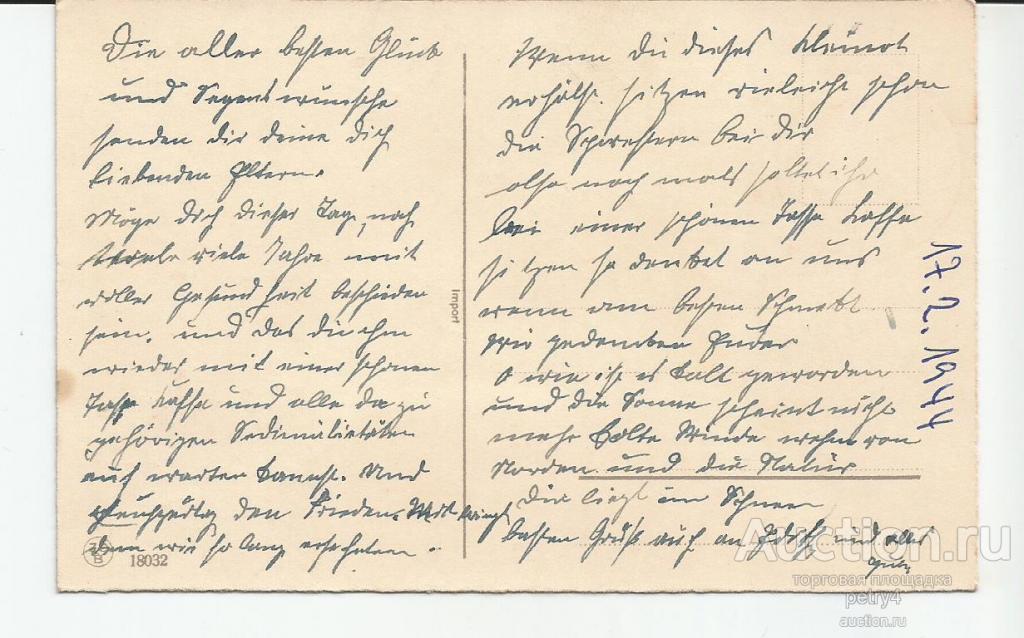 Die aller besten Glück
und Segens wünsche
senden dir deine dich
liebenden Eltern.
Möge dich dieser Tag noch
viele Jahre mit
voller Gesundheit beschieden
sein. und das du ihm
wieder mit einer schönen
Tasse Kaffe und alle dazu
gehörigen
auf warten kannst. Und
den Frieden. bringt
den wir so lang ersehnten.
Wenn du dieses Kleinot
erhälst. sitzen vieleicht schon
die Schwestern bei dir
also noch mals solltet ihr
bei einer schönen Tasse Kaffe
sitzen so denket an uns
wenn am besten Schmekt
Wir gedemken Euder
O wie ist es Kalt geworden
und die Sonne scheint nicht
mehr Kalte Winde wehn von
Norden und die Natur
Die liegt im Schnee
besten Gruß auf an und alles
gute
17.2.1944
Import
18032
Auction.ru
торговая площадка
petry4
auction.ru